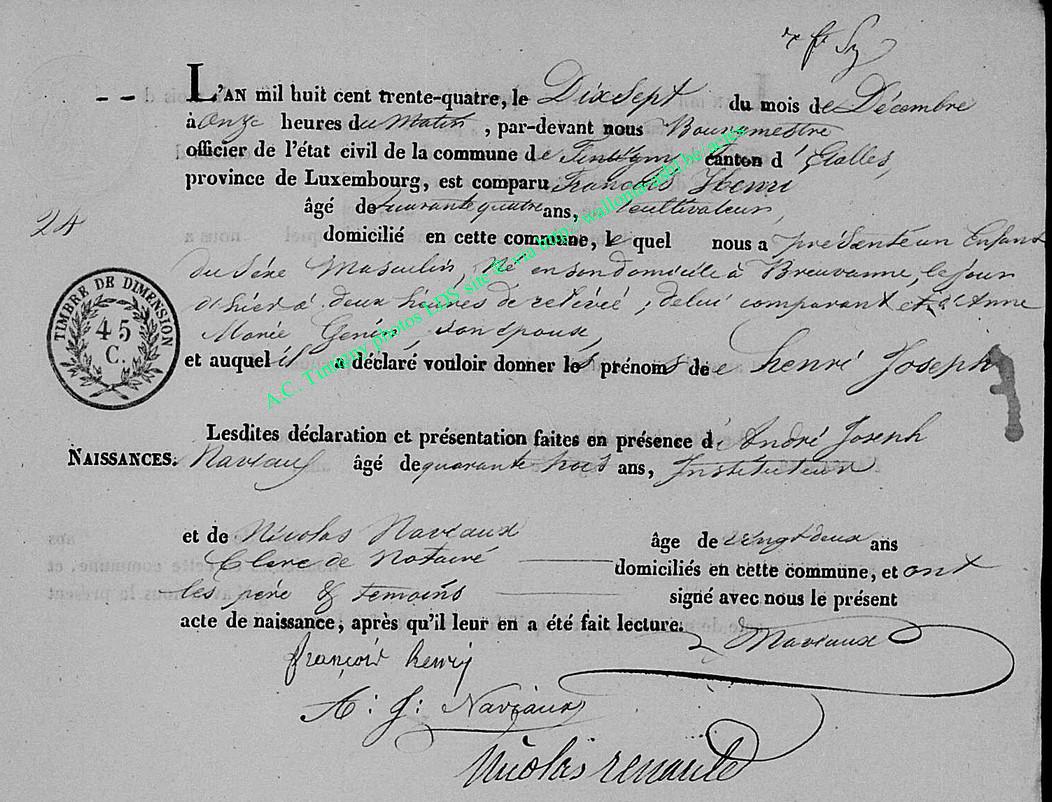 L'AN mil huit cent trente-quatre, le Dix Sept du mois de Décembre
à Onze heures du Matin, par-devant nous Bourgmestre
officier de l'état civil de la commune de Tintigny, canton d'Etalles,
province de Luxembourg, est comparu François Henri
âgé de quarante quatre ans, cultivateur,
24
domicilié en cette commune, le quel nous a présenté un Enfant
du Séxe Masculin, Né en son domicile à Breuvanne, le jour
d'hier à deux heures de relevée, de lui comparant et d'Anne
Marie Genin, son épouse,
et auquel il a déclaré vouloir donner les prénoms de henri Joseph
TIMBRE DE DIMENSION
45
C.
Lesdites déclaration et présentation faites en présence d'André Joseph
NAISSANCES. Naviaux âgé de quarante trois ans, Instituteur
et de Nicolas Naviaux âge de vingt deux ans
Clerc de Notaire domiciliés en cette commune, et ont
les père & temoins signé avec nous le présent
acte de naissance, après qu'il leur en a été fait lecture.
Naviaux
françois henry
A: J: Naviaux
Nicolas renauld
A.C. Tintigny photos LDS site & via http://wallonica.gkd.be/actes